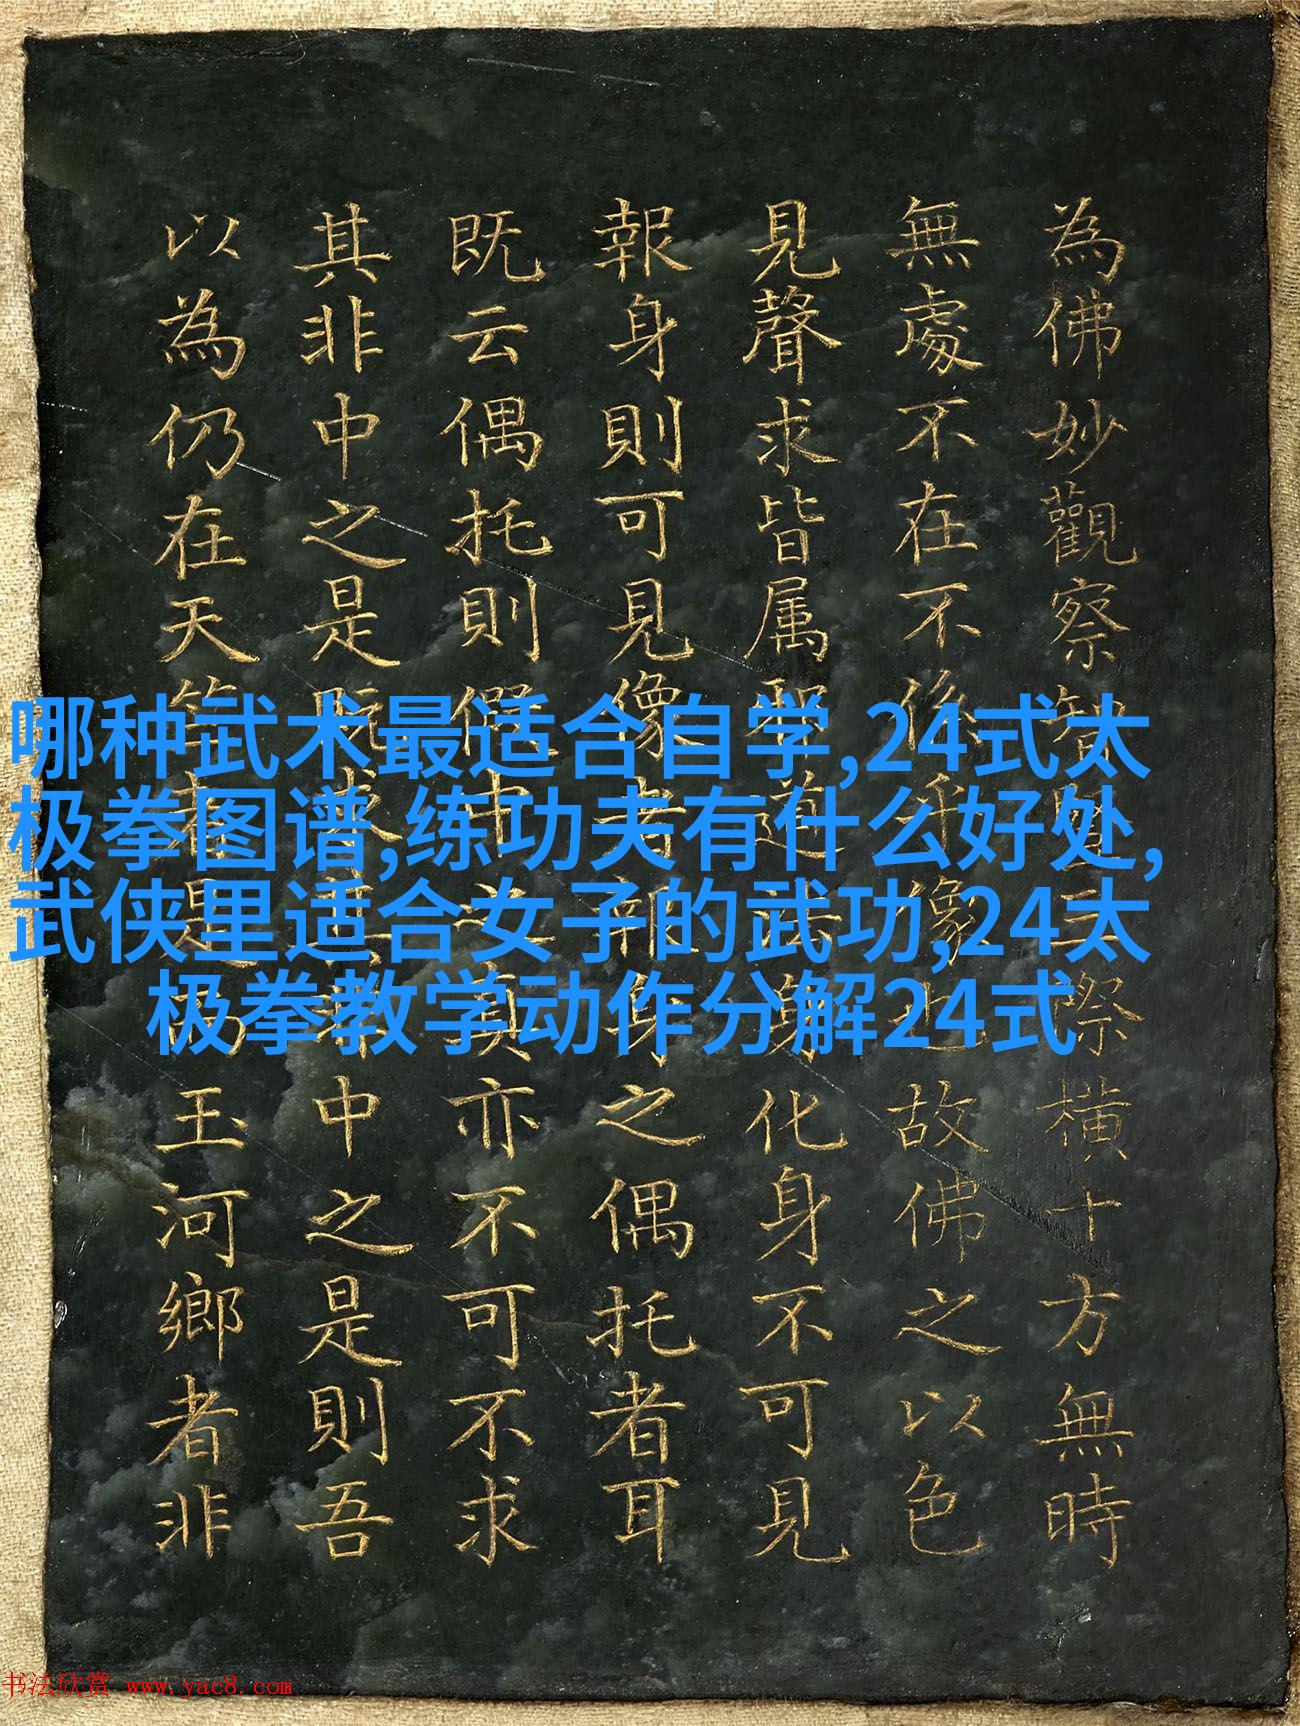 為佛妙觀察智三際橫十方無時
無處不在不係像也故佛之以色
見聲求皆属道法身化身不可見
報身則可見像者報身之偶托者耳
既云偶托則假中之真亦不可不求
其非中之是既求其非中之是則吾
以為仍在天竺者是為玉河鄉者非
哪种武术最适合自学,24式太
极拳图谱,练功夫有什么好处,
武侠里适合女子的武功,24太
极拳教学动作分解24式
书法欣赏 www.yac8.com